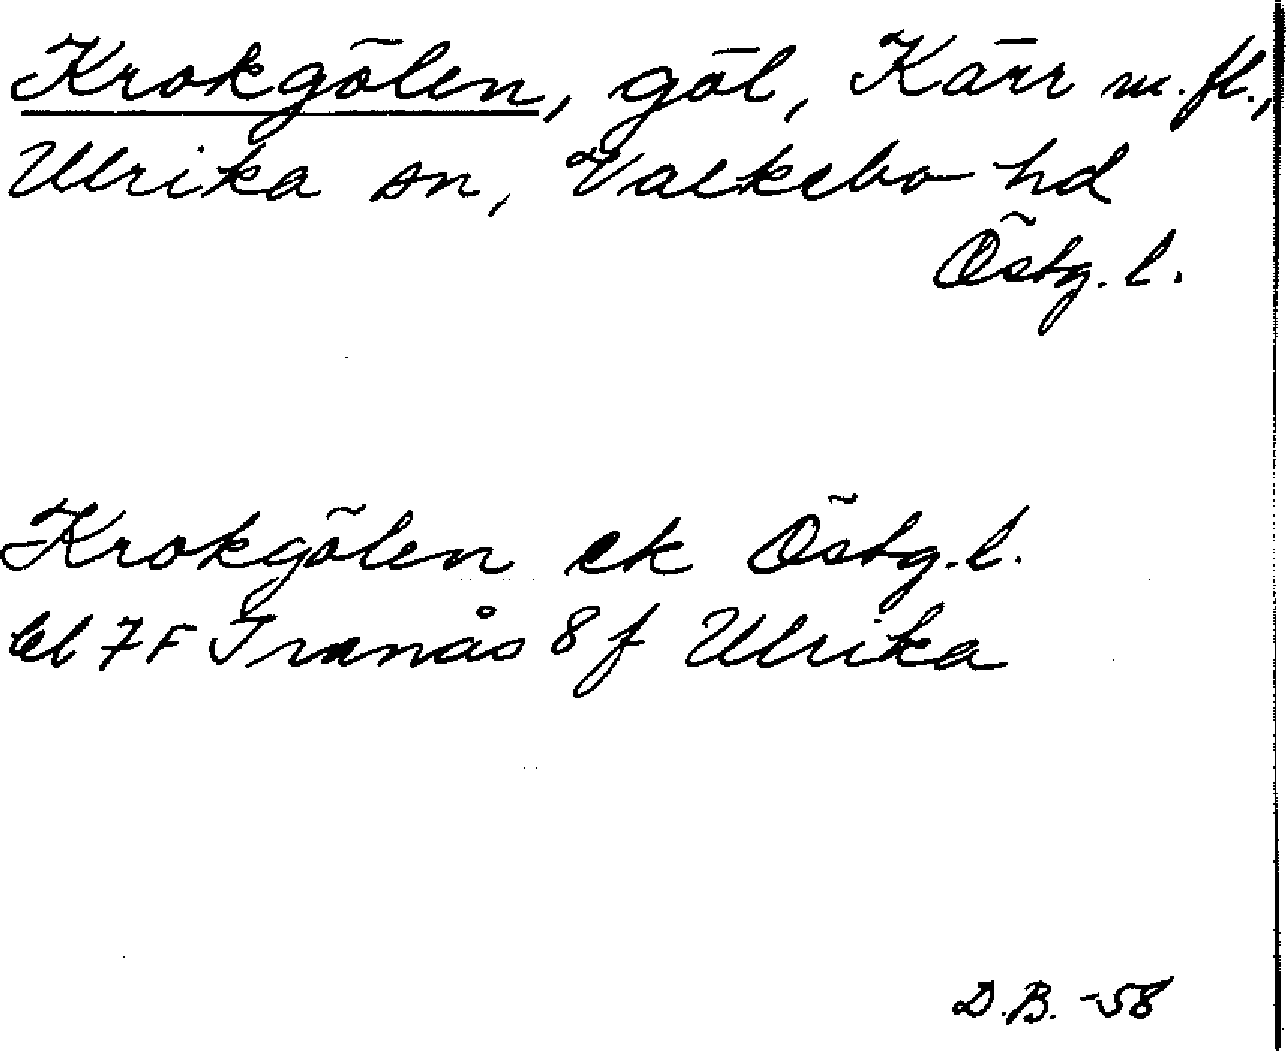 Krokgölen, göl, Kärr m.fl.,
Ulrika sn, Valkebo hd
Östg. l.
Krokgölen ek Östg. l.
bl 7F Tranås 8f Ulrika
D.B. -58